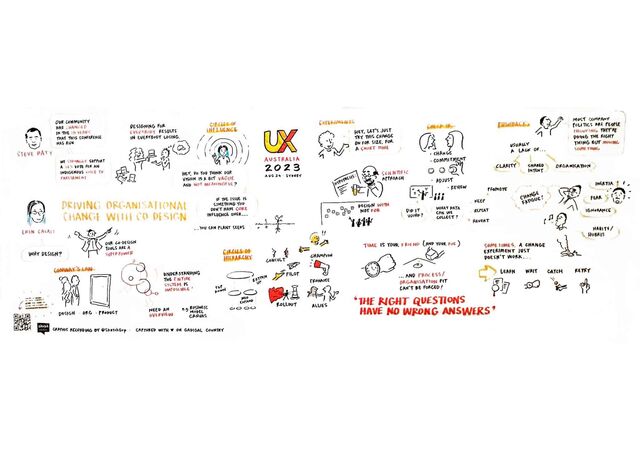 STEVE BATY
OUR COMMUNITY
HAS CHANGED
IN THE 10 YEARS
THAT THIS CONFERENCE
HAS RUN
WE STRONGLY SUPPORT
A YES VOTE FOR AN
INDIGENOUS VOICE TO
PARLIAMENT
DESIGNING FOR
EVERYBODY RESULTS
IN EVERYBODY LOSING.
CIRCLES OF
INFLUENCE
HEY, DO YOU THINK OUR
VISION IS A BIT VAGUE
AND NOT MEANINGFUL?
UX
AUSTRALIA
2023
AUG 24 · SYDNEY
DRIVING ORGANISATIONAL
CHANGE WITH CO DESIGN
WHY DESIGN?
OUR CO-DESIGN
TOOLS ARE A
SUPERPOWER
IF THE ISSUE IS
SOMETHING YOU
DON'T HAVE CORE
INFLUENCE OVER....
...YOU CAN PLANT SEEDS
CONWAY'S LAW
DESIGN
ORG
PRODUCT
UNDERSTANDING
THE ENTIRE
SYSTEM IS
IMPOSSIBLE
NEED AN
OVERVIEW
BUSINESS
MODEL
CANVAS
CIRCLES OF
HIERARCHY
CONSULT
CHAMPION
PILOT
TRAINING
ROLLOUT
ALLIES
EXPERIMENTS
HEY, LET'S JUST
TRY THIS CHANGE
ON FOR SIZE, FOR
A SHORT TIME
SCIENTIFIC
APPROACH
HYPOTHESIS
DESIGN WITH
NOT FOR
CHANGE
COMMITMENT
ADJUST
REVIEW
DID IT
WORK?
WHAT DATA
CAN WE
COLLECT?
TIME IS YOUR FRIEND (AND YOUR FOE)
...AND PROCESS/
ORGANISATION FIT
CAN'T BE FORCED!
"THE RIGHT QUESTIONS
HAVE NO WRONG ANSWERS"
USUALLY
A LACK OF...
CLARITY
SHARED
INTENT
ORGANISATION
MOST COMPANY
POLITICS ARE PEOPLE
THINKING THEY'RE
DOING THE RIGHT
THING BUT MISSING
SOMETHING
PROMOTE
KEEP
REPEAT
REPEAT
CHANGE
FATIGUE?
INERTIA
FEAR
IGNORANCE
HABITS/
SOMETIMES, A CHANGE
EXPERIMENT JUST
DOESN'T WORK...
LEARN
WAIT
CATCH
RETRY
GRAPHIC RECORDING BY
CAPTURED WITH ♥ ON GADIGAL COUNTRY